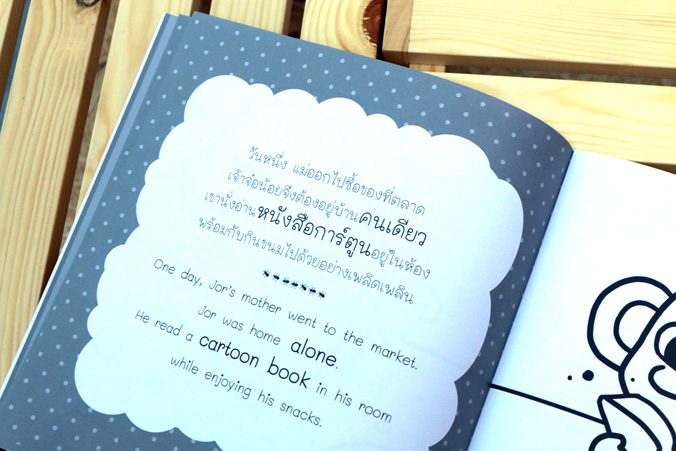 วันหนึ่ง แม่ออกไปซื้อของที่ตลาด
เจ้าจ๋อน้อยจึงต้องอยู่บ้านคนเดียว
เขานั่งอ่านหนังสือการ์ตูนอยู่ในห้อง
พร้อมกับกินขนมไปด้วยอย่างเพลิดเพลิน
One day, Jor's mother went to the market.
Jor was home alone.
He read a cartoon book in his room
while enjoying his snacks.